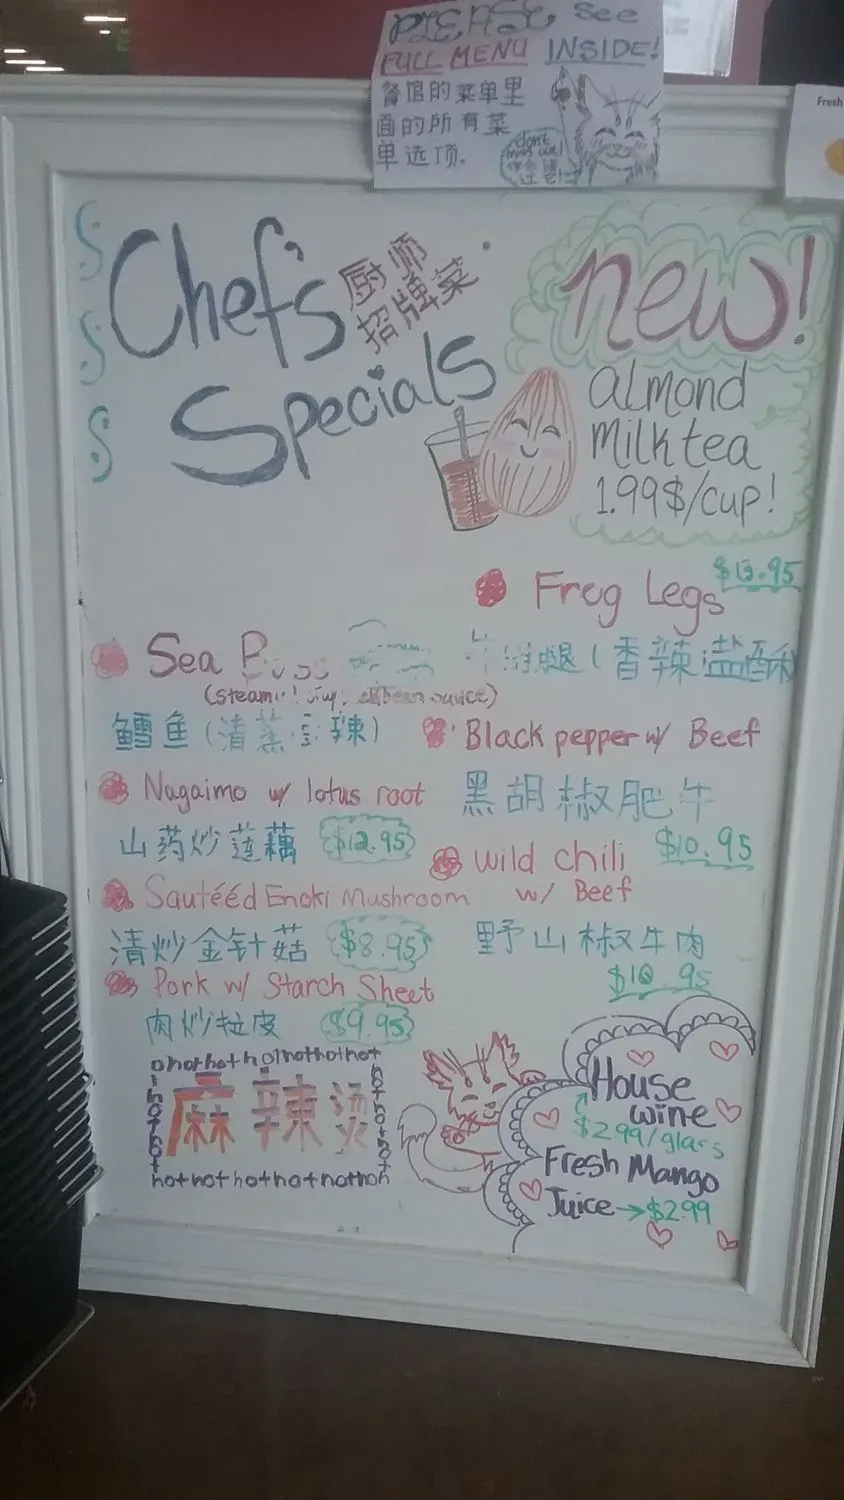 PLEASE See
FULL MENU INSIDE!
餐馆的菜单里
面的所有菜
单选项.
don't
miss out!
Fresh
Chef's
厨师
招牌菜
Specials
new!
almond
Milk tea
1.99$/cup!
Frog Legs $13.95
腿(香辣
Sea
(steam
鳕鱼(清蒸 辣)
Black pepper w/ Beef
黑胡椒肥牛
$10.95
Nagaimo w/ lotus root
山药炒莲藕 $12.95
wild chili
w/ Beef
野山椒牛肉
$10.95
Sautééd Enoki Mushroom
清炒金针菇 $8.95
Pork w/ Starch Sheet
肉炒拉皮 $9.95
hothothothothothot
麻辣烫
hothothothothothoth
House
wine
$2.99/glass
Fresh Mango
Juice → $2.99